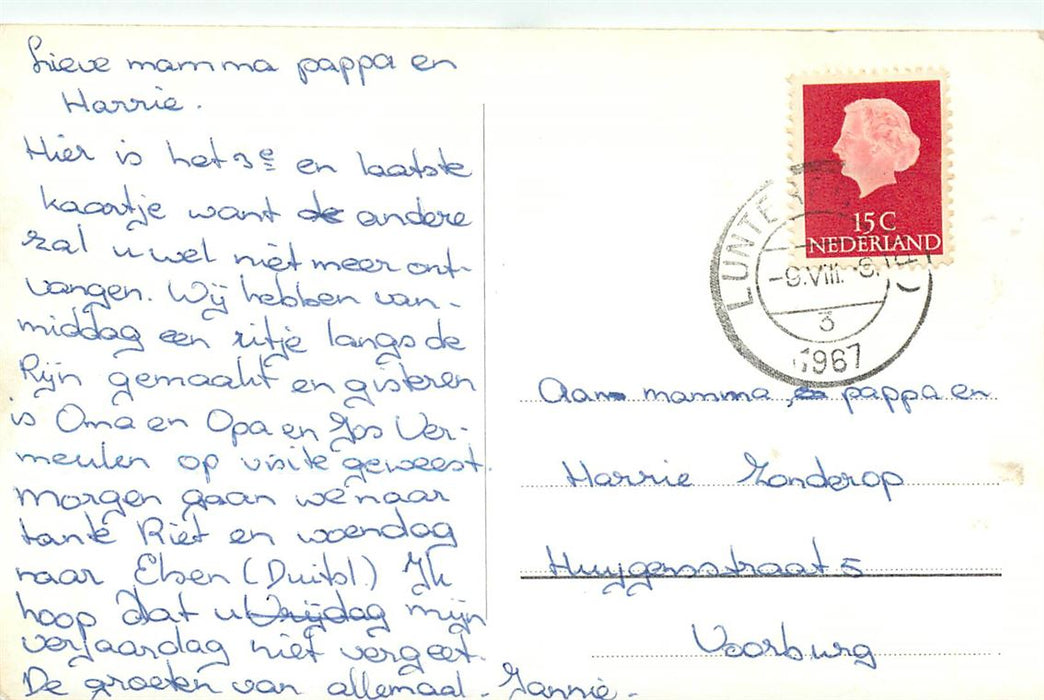 Lieve mamma pappa en
Harrie.
Hier is het 3e en laatste
kaartje want de andere
zal u wel niet meer ont-
vangen. Wij hebben van-
middag een ritje langs de
Rijn gemaakt en gisteren
is Oma en Opa en Jos Ver-
meulen op visite geweest.
morgen gaan we naar
tante Riet en woendag
naar Elsen (Duitsl.) Ik
hoop dat u Vrijdag mijn
verjaardag niet vergeet.
De groeten van allemaal - Jannie -
15 C
NEDERLAND
LUNTE
-9.VIII.
3
1967
Aan mamma, en pappa en
Harrie Zonderop
Huygensstraat 5
Voorburg